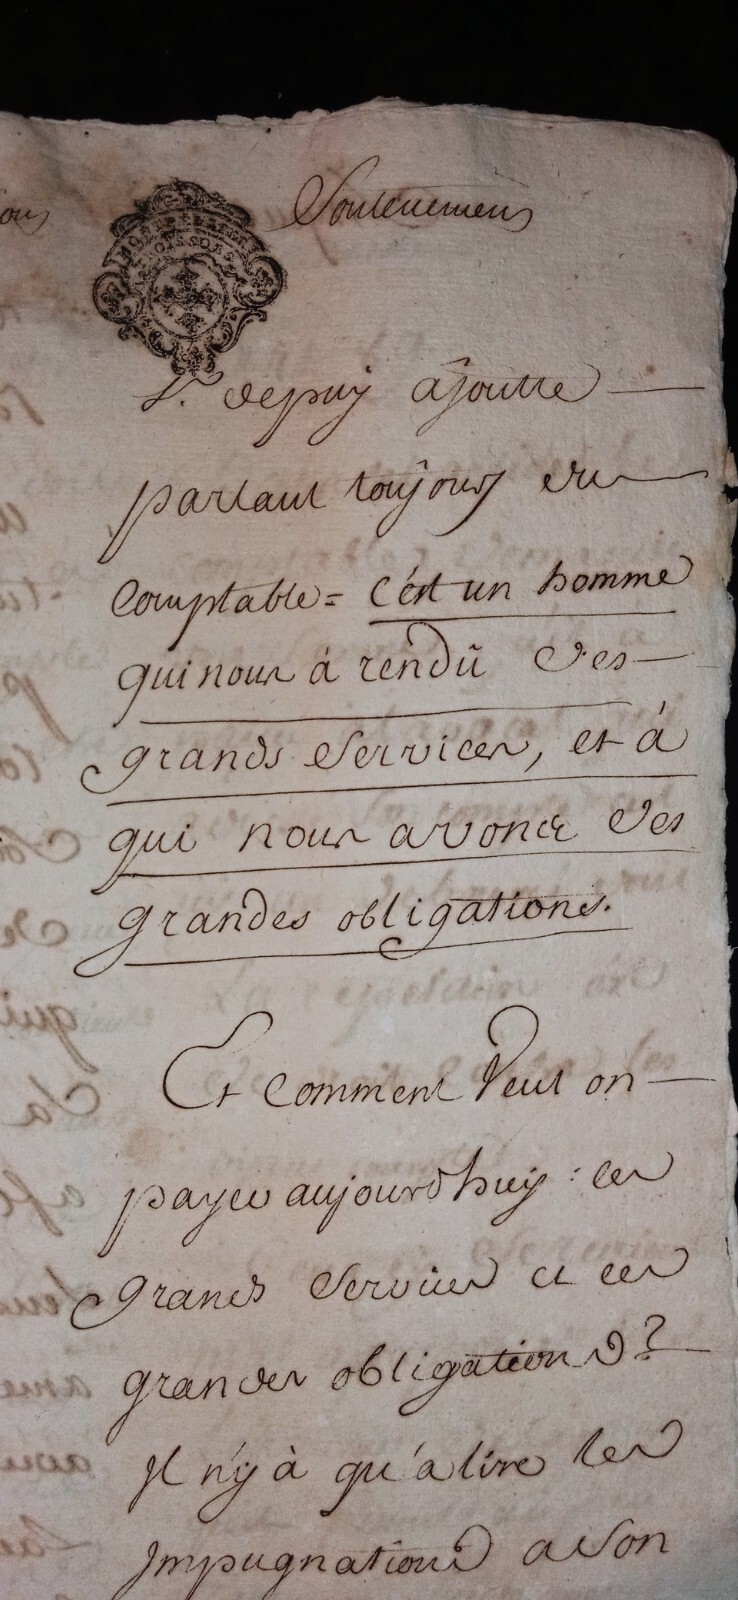 Soutenemens
Sr. depuy ajoutte
parlant toujours du
Comptable = C'est un homme
qui nous à rendû des
grands Services, et à
qui nous avons des
grandes obligations.
Et Comment Veut on
payer aujourd'huy ces
grands Services et ces
grandes obligations?
Il n'y à qu'a lire les
Impugnations a Son